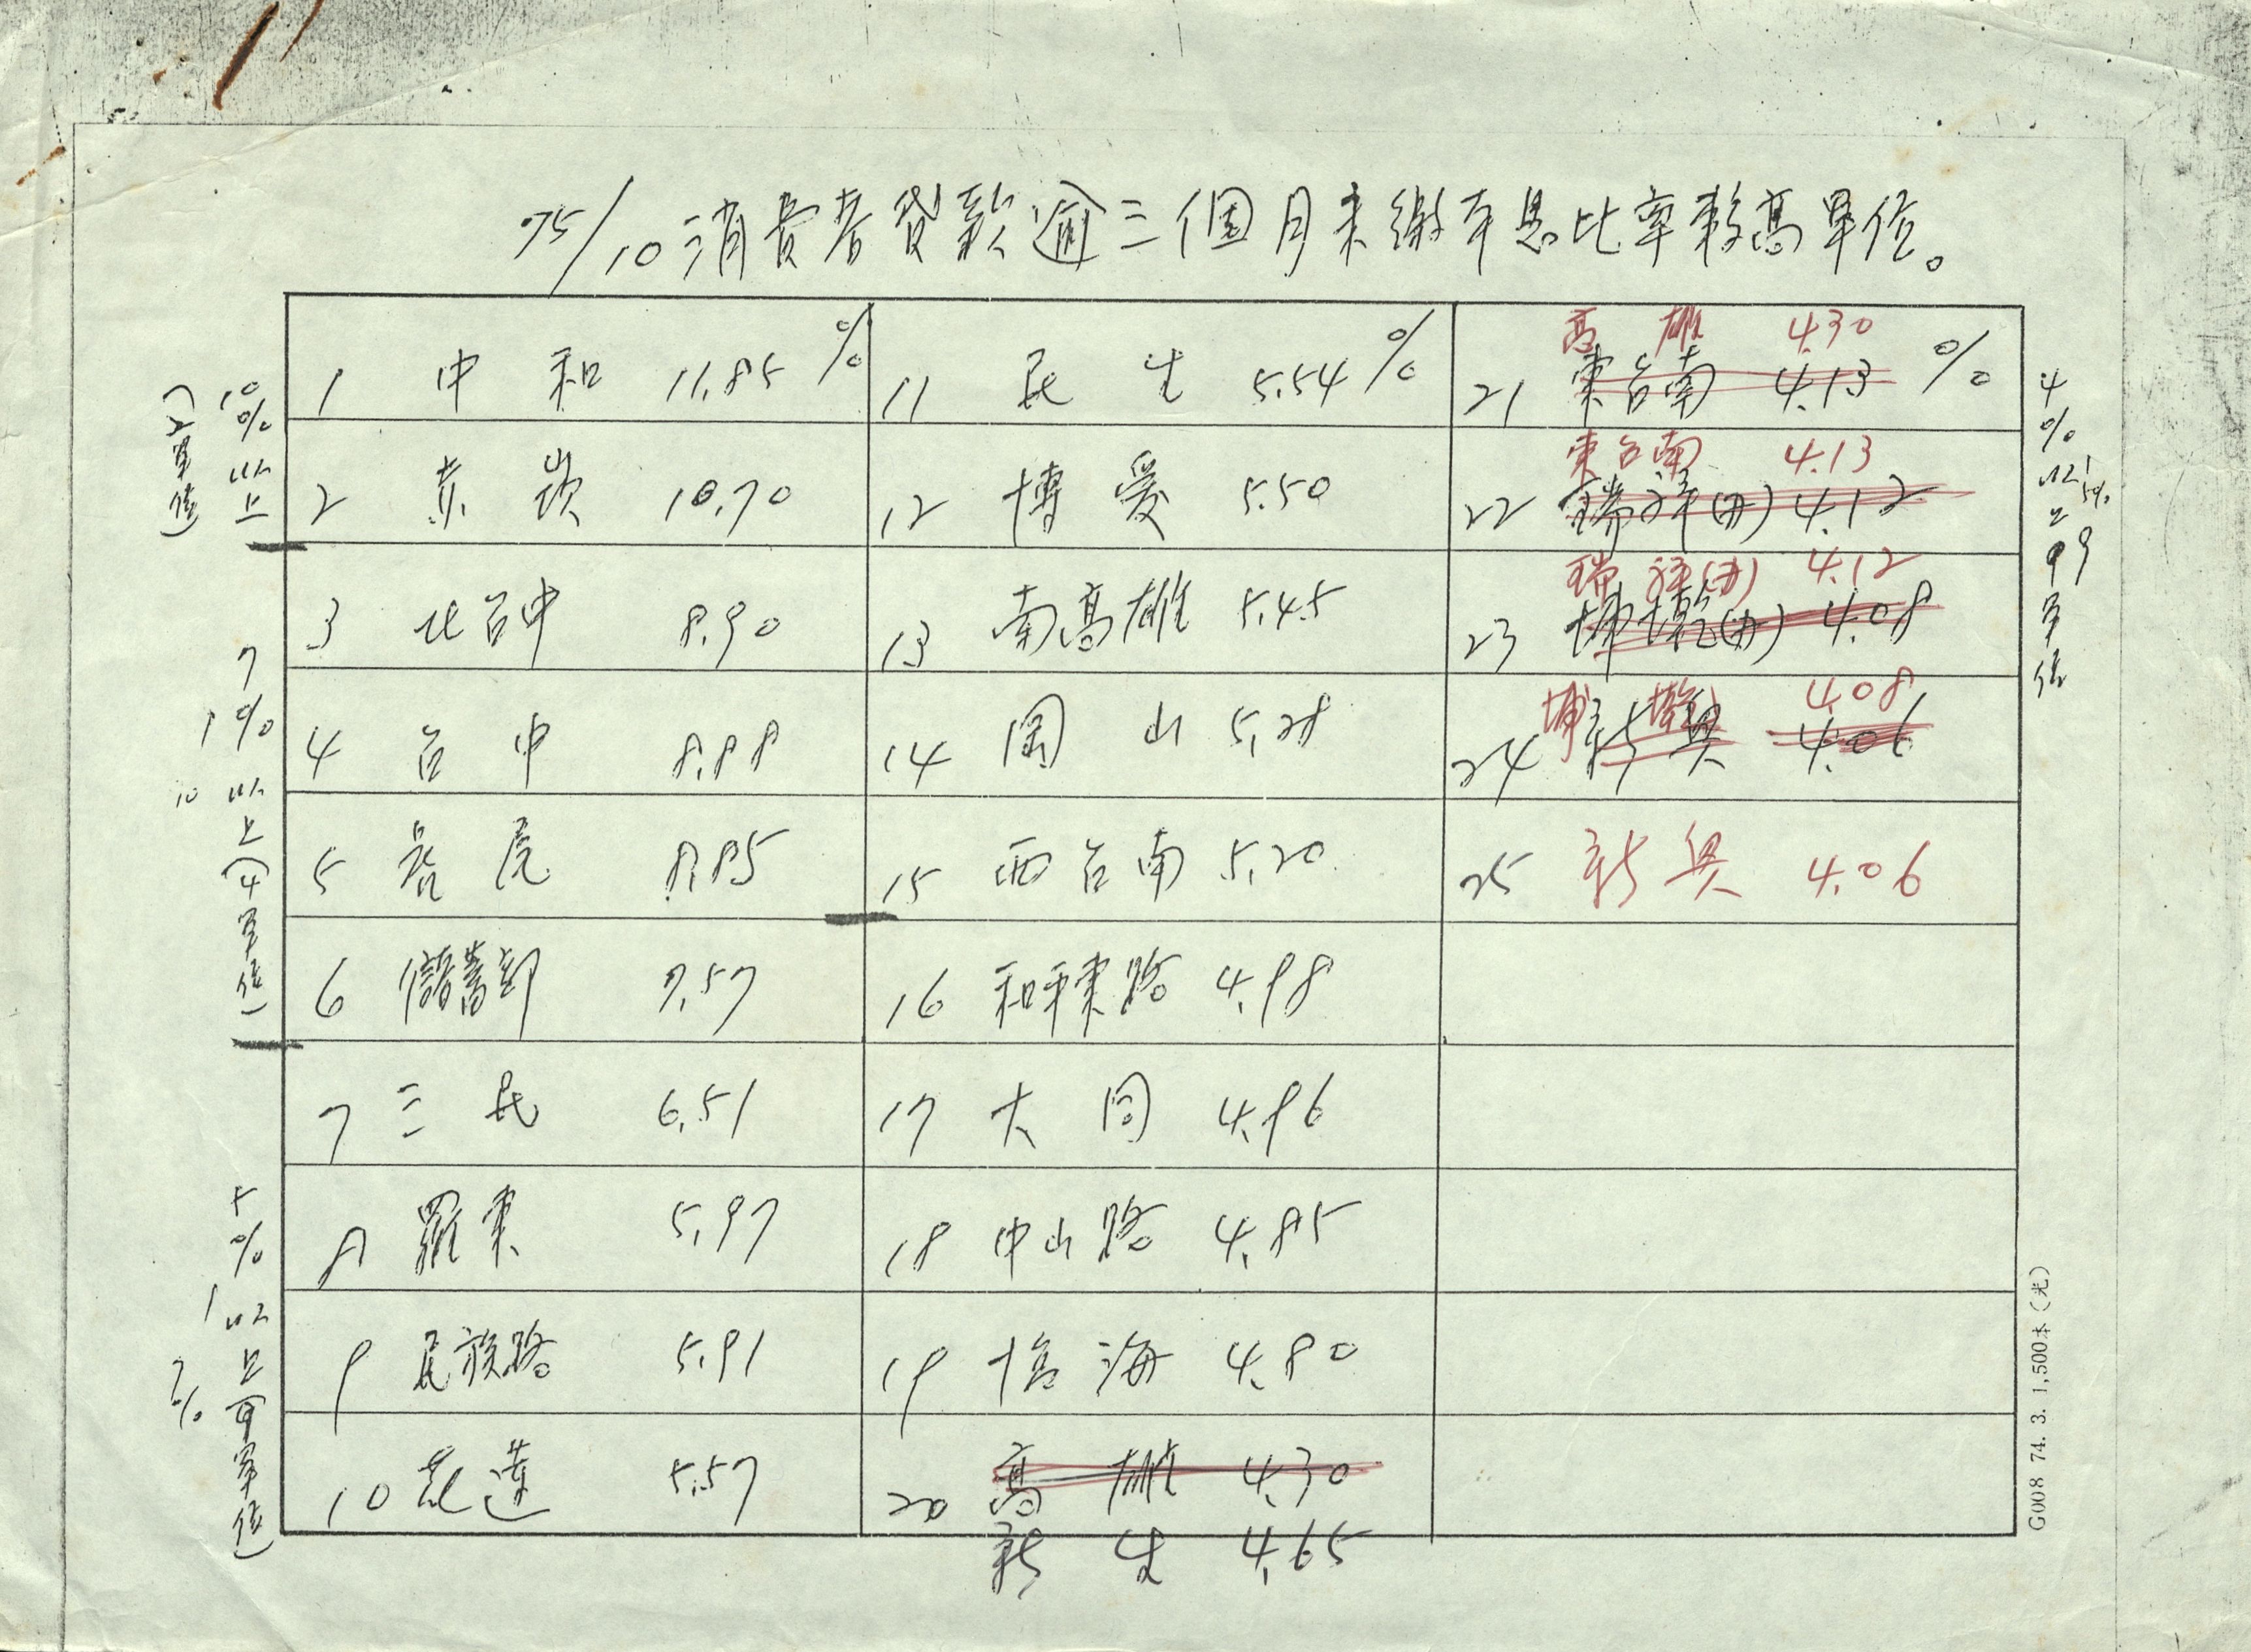 75/10 消費者貸款逾三個月未繳本息比率較高單位。
1 中和 11.85 %
2 赤崁 10.70
3 北台中 8.90
4 台中 8.88
5 虎 8.85
6 儲蓄部 7.57
7 三民 6.51
8 羅東 5.97
9 民族路 5.91
10 花蓮 5.57
11 民生 5.54 %
12 博愛 5.50
13 南高雄 5.45
14 岡山 5.28
15 西台南 5.20
16 和平東路 4.98
17 大同 4.96
18 中山路 4.85
19 臨海 4.80
20 高雄 4.30
新生 4.65
高雄 4.30
21 東台南 4.13 %
東台南 4.13
22 瑞祥(分) 4.12
瑞祥(分) 4.12
23 埔墘(分) 4.08
埔墘 4.08
24 新興 4.06
25 新興 4.06
10%以上
(2單位)
7%以上(4單位)
10
5%以上
單位)
7%
4%以上
5%
9單位
G008 74. 3. 1,500本(光)